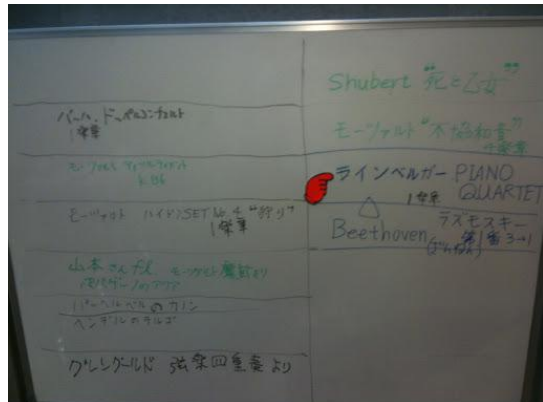 バッハ ドッペルコンチェルト
1楽章
モーツァルト
モーツァルト ハイドンSET No.4 "狩り"
1楽章
山本さん
モーツァルト 魔笛より
パパゲーノのアリア
パッヘルベルのカノン
ヘンデルのラルゴ
グレングールド 弦楽四重奏より
Shubert "死と乙女"
モーツァルト "不協和音"
楽章
ラインベルガー PIANO
1楽章 QUARTET
Beethoven ラズモスキー
第1番 3→1